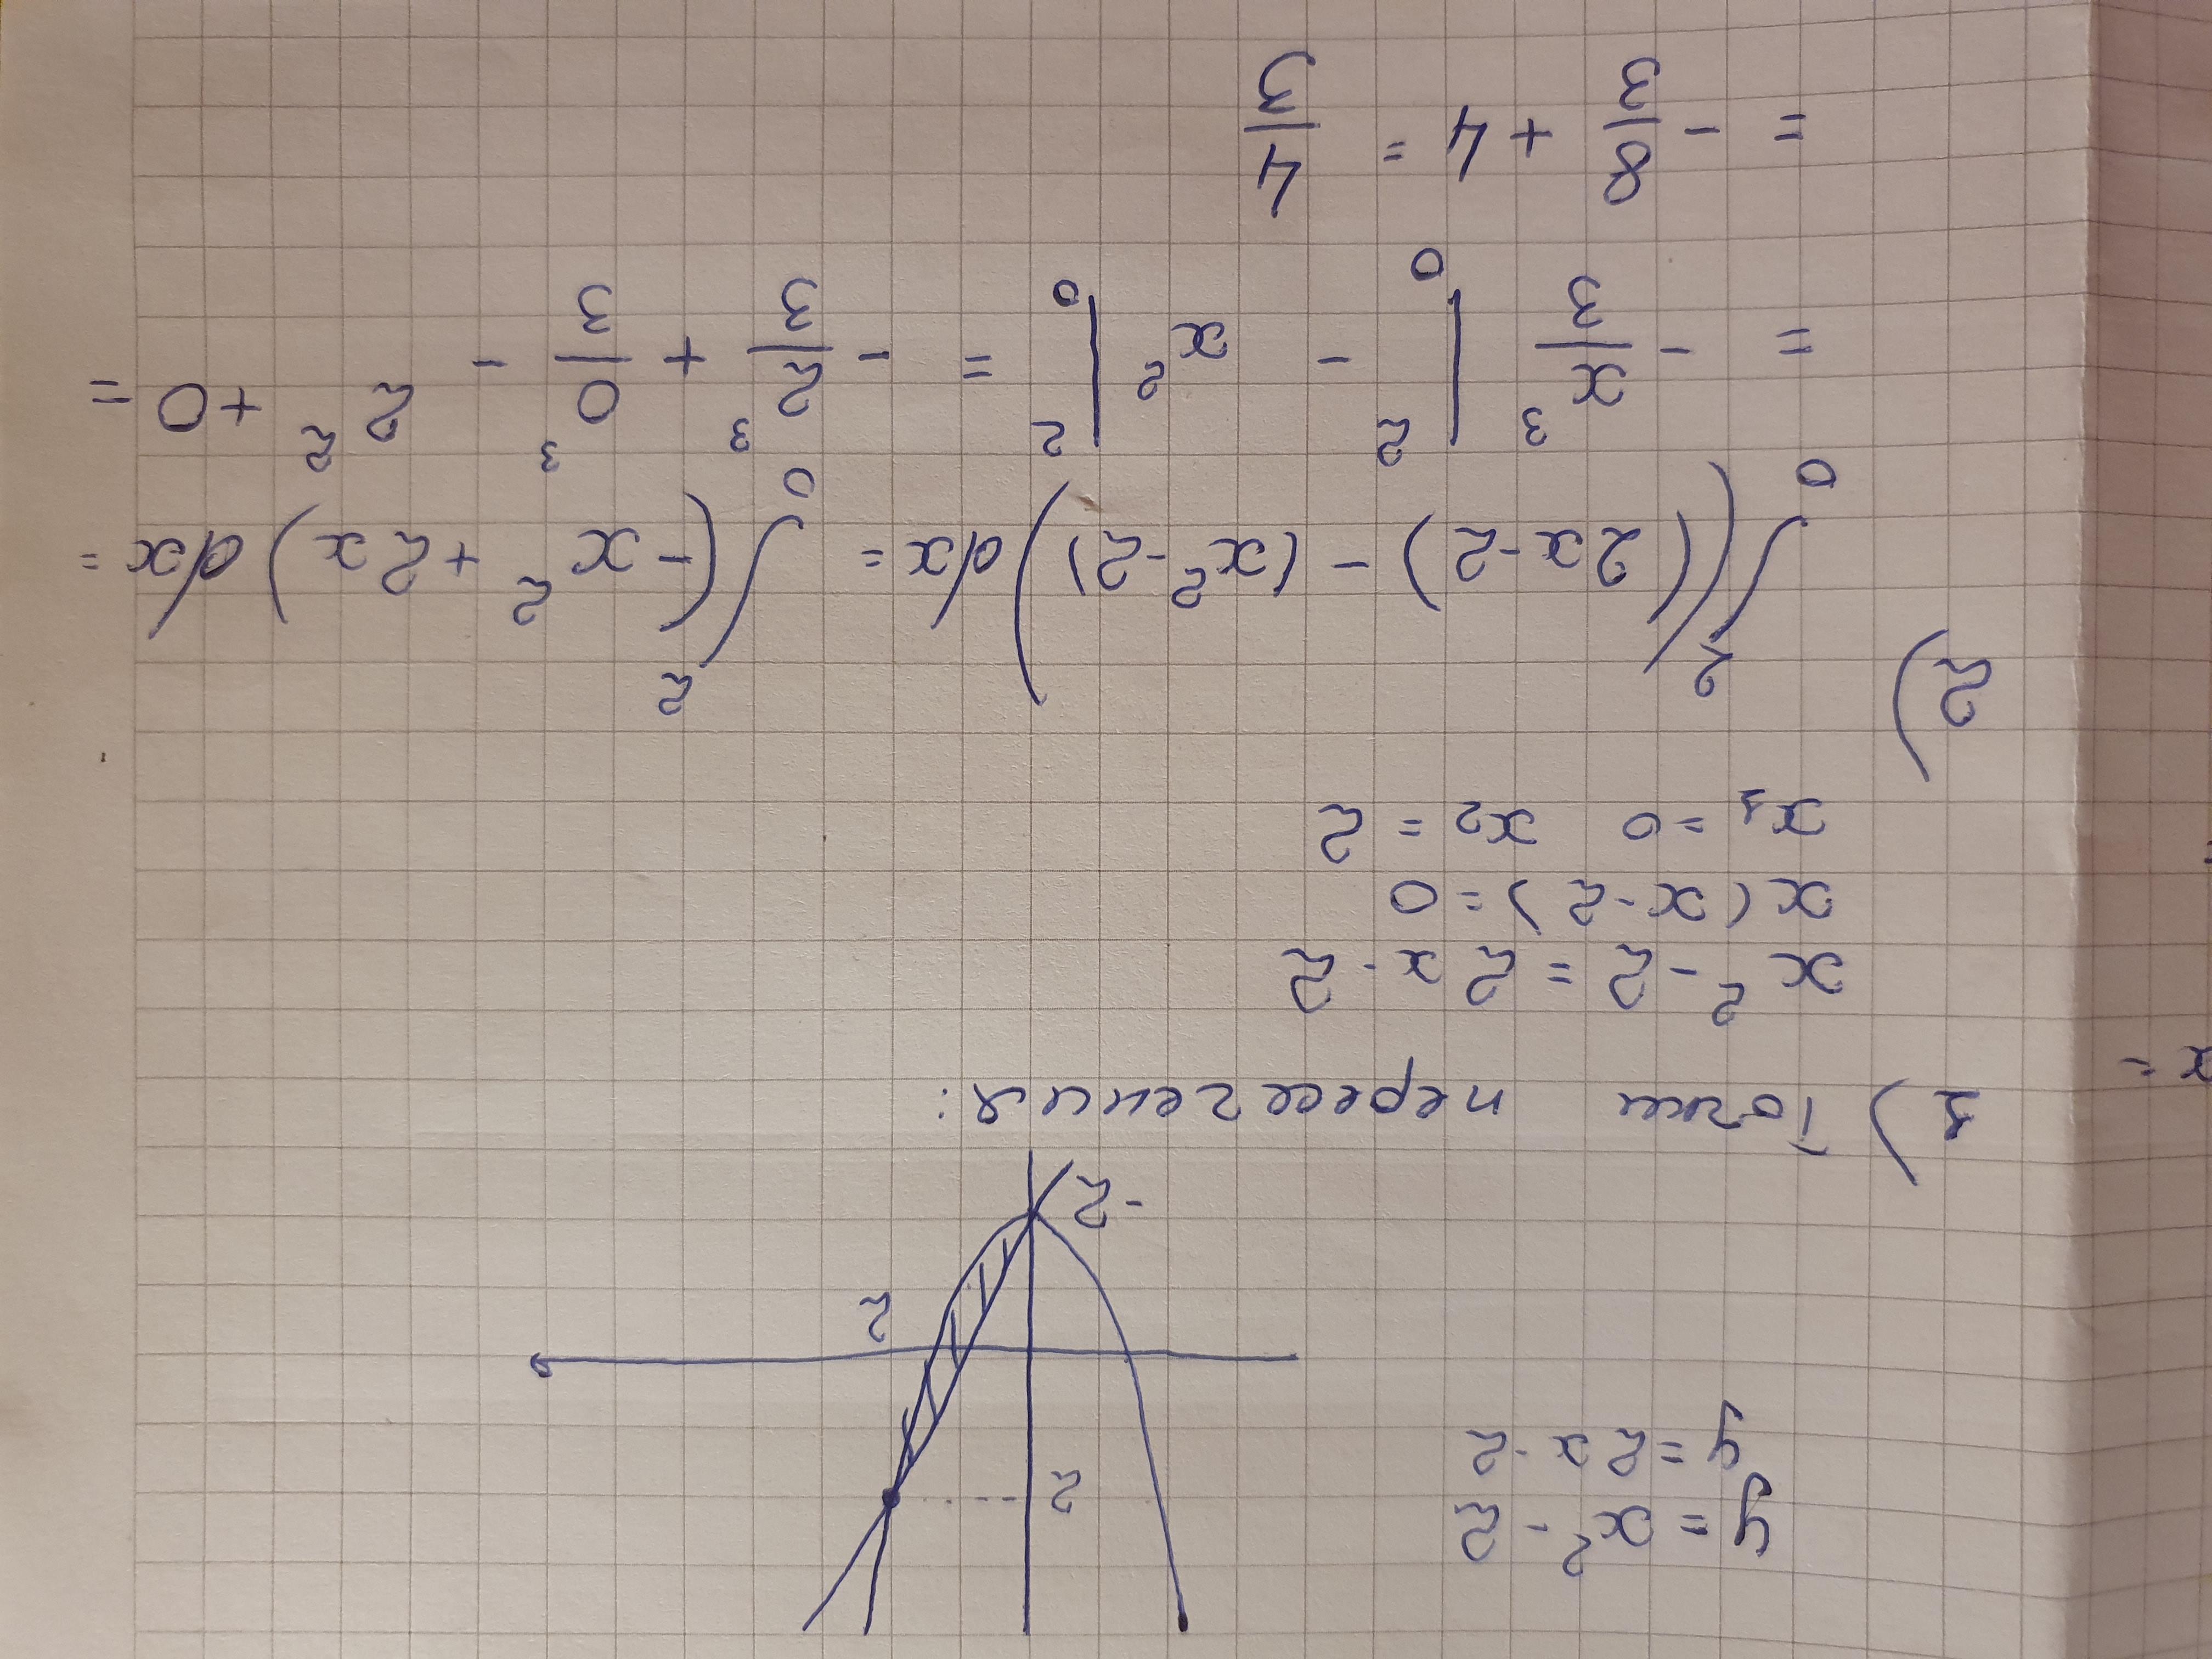 y = x² - 2
y = 2x - 2
2
2
-2
1) Точки пересечения:
x² - 2 = 2x - 2
x(x - 2) = 0
x₁ = 0 x₂ = 2
2) ∫₀² ((2x - 2) - (x² - 2)) dx = ∫₀² (-x² + 2x) dx =
= - x³/3 |₀² - x² |₀² = - 2³/3 + 0³/3 - 2² + 0 =
= - 8/3 + 4 = 4/3
=
x =